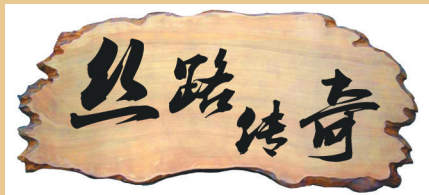 丝路传奇